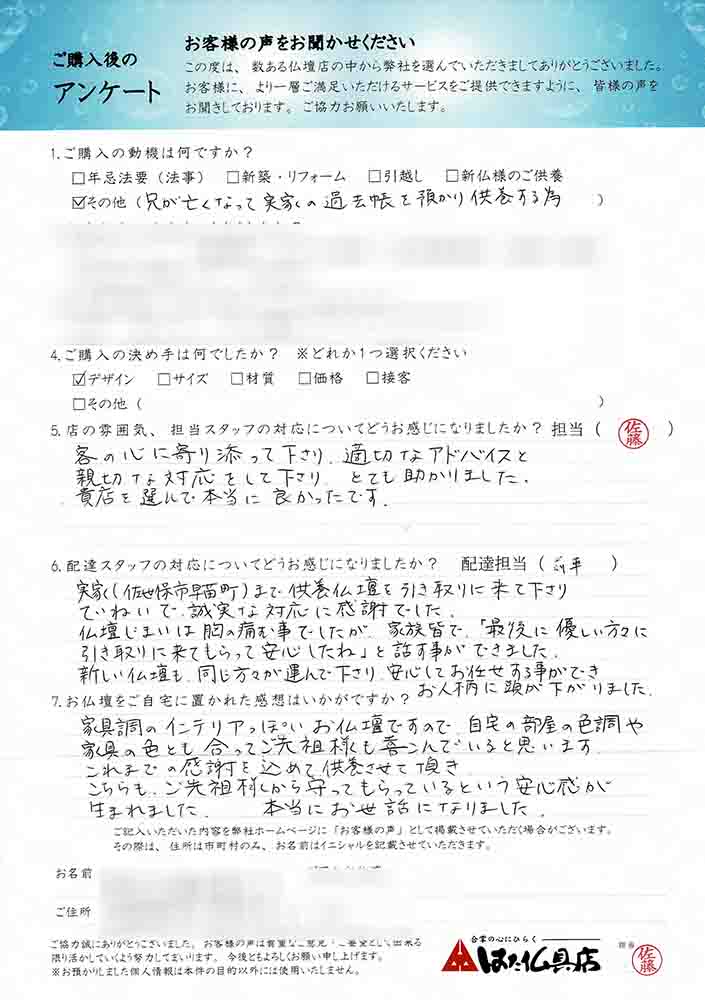 ご購入後の
アンケート
お客様の声をお聞かせください
この度は、数ある仏壇店の中から弊社を選んでいただきましてありがとうございました。
お客様に、より一層ご満足いただけるサービスをご提供できますように、皆様の声を
お聞きしております。ご協力お願いいたします。
1.ご購入の動機は何ですか？
□年忌法要（法事） □新築・リフォーム □引越し □新仏様のご供養
☑その他（兄が亡くなって実家の過去帳を預かり供養する為）
4.ご購入の決め手は何でしたか？ ※どれか1つ選択ください
☑デザイン □サイズ □材質 □価格 □接客
□その他（ ）
5.店の雰囲気、担当スタッフの対応についてどうお感じになりましたか？ 担当（佐藤）
客の心に寄り添って下さり、適切なアドバイスと
親切な対応をして下さり、とても助かりました。
貴店を選んで本当に良かったです。
6.配達スタッフの対応についてどうお感じになりましたか？ 配達担当（ ）
実家（佐世保市早苗町）まで供養仏壇を引き取りに来て下さり
ていねいで、誠実な対応に感謝でした。
仏壇じまいは胸の痛む事でしたが、家族皆で、「最後に優しい方々に
引き取りに来てもらって安心したね」と話す事ができました。
新しい仏壇も、同じ方々が運んで下さり、安心してお任せする事ができ
お人柄に頭が下がりました。
7.お仏壇をご自宅に置かれた感想はいかがですか？
家具調のインテリアっぽいお仏壇ですので、自宅の部屋の色調や
家具の色とも合ってご先祖様も喜こんでいると思います。
これまでの感謝を込めて供養させて頂き
こちらも、ご先祖様から守ってもらっているという安心感が
生まれました。 本当にお世話になりました。
ご記入いただいた内容を弊社ホームページに「お客様の声」として掲載させていただく場合がございます。
その際は、住所は市町村のみ、お名前はイニシャルを記載させていただきます。
お名前
ご住所
ご協力誠にありがとうございました。お客様の声は貴重なご意見・ご要望として出来る
限り活かしていくよう努力してまいります。今後ともよろしくお願い申し上げます。
※お預かりしました個人情報は本件の目的以外には使用いたしません。
合掌の心にひらく
はた仏具店
担当
佐藤